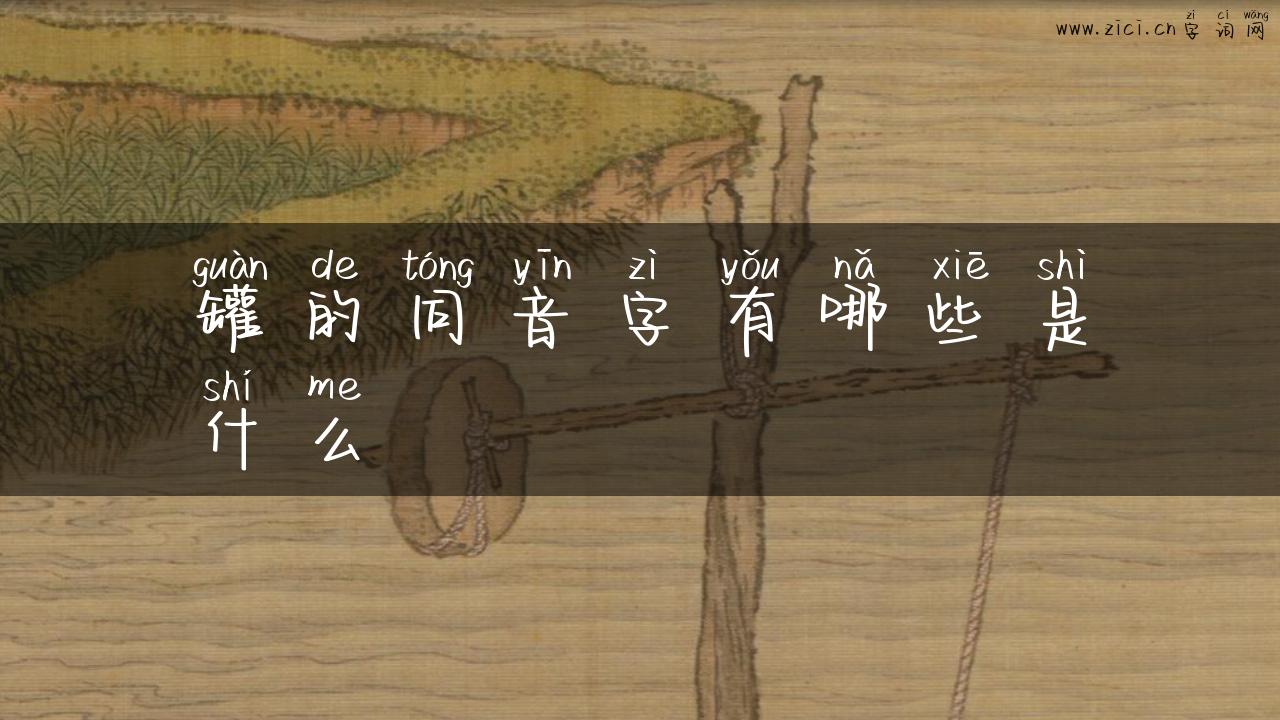 zì cí wǎng
www.zici.cn 字 词 网
guàn de tóng yīn zì yǒu nǎ xiē shì
罐 的 同 音 字 有 哪 些 是
shí me
什 么